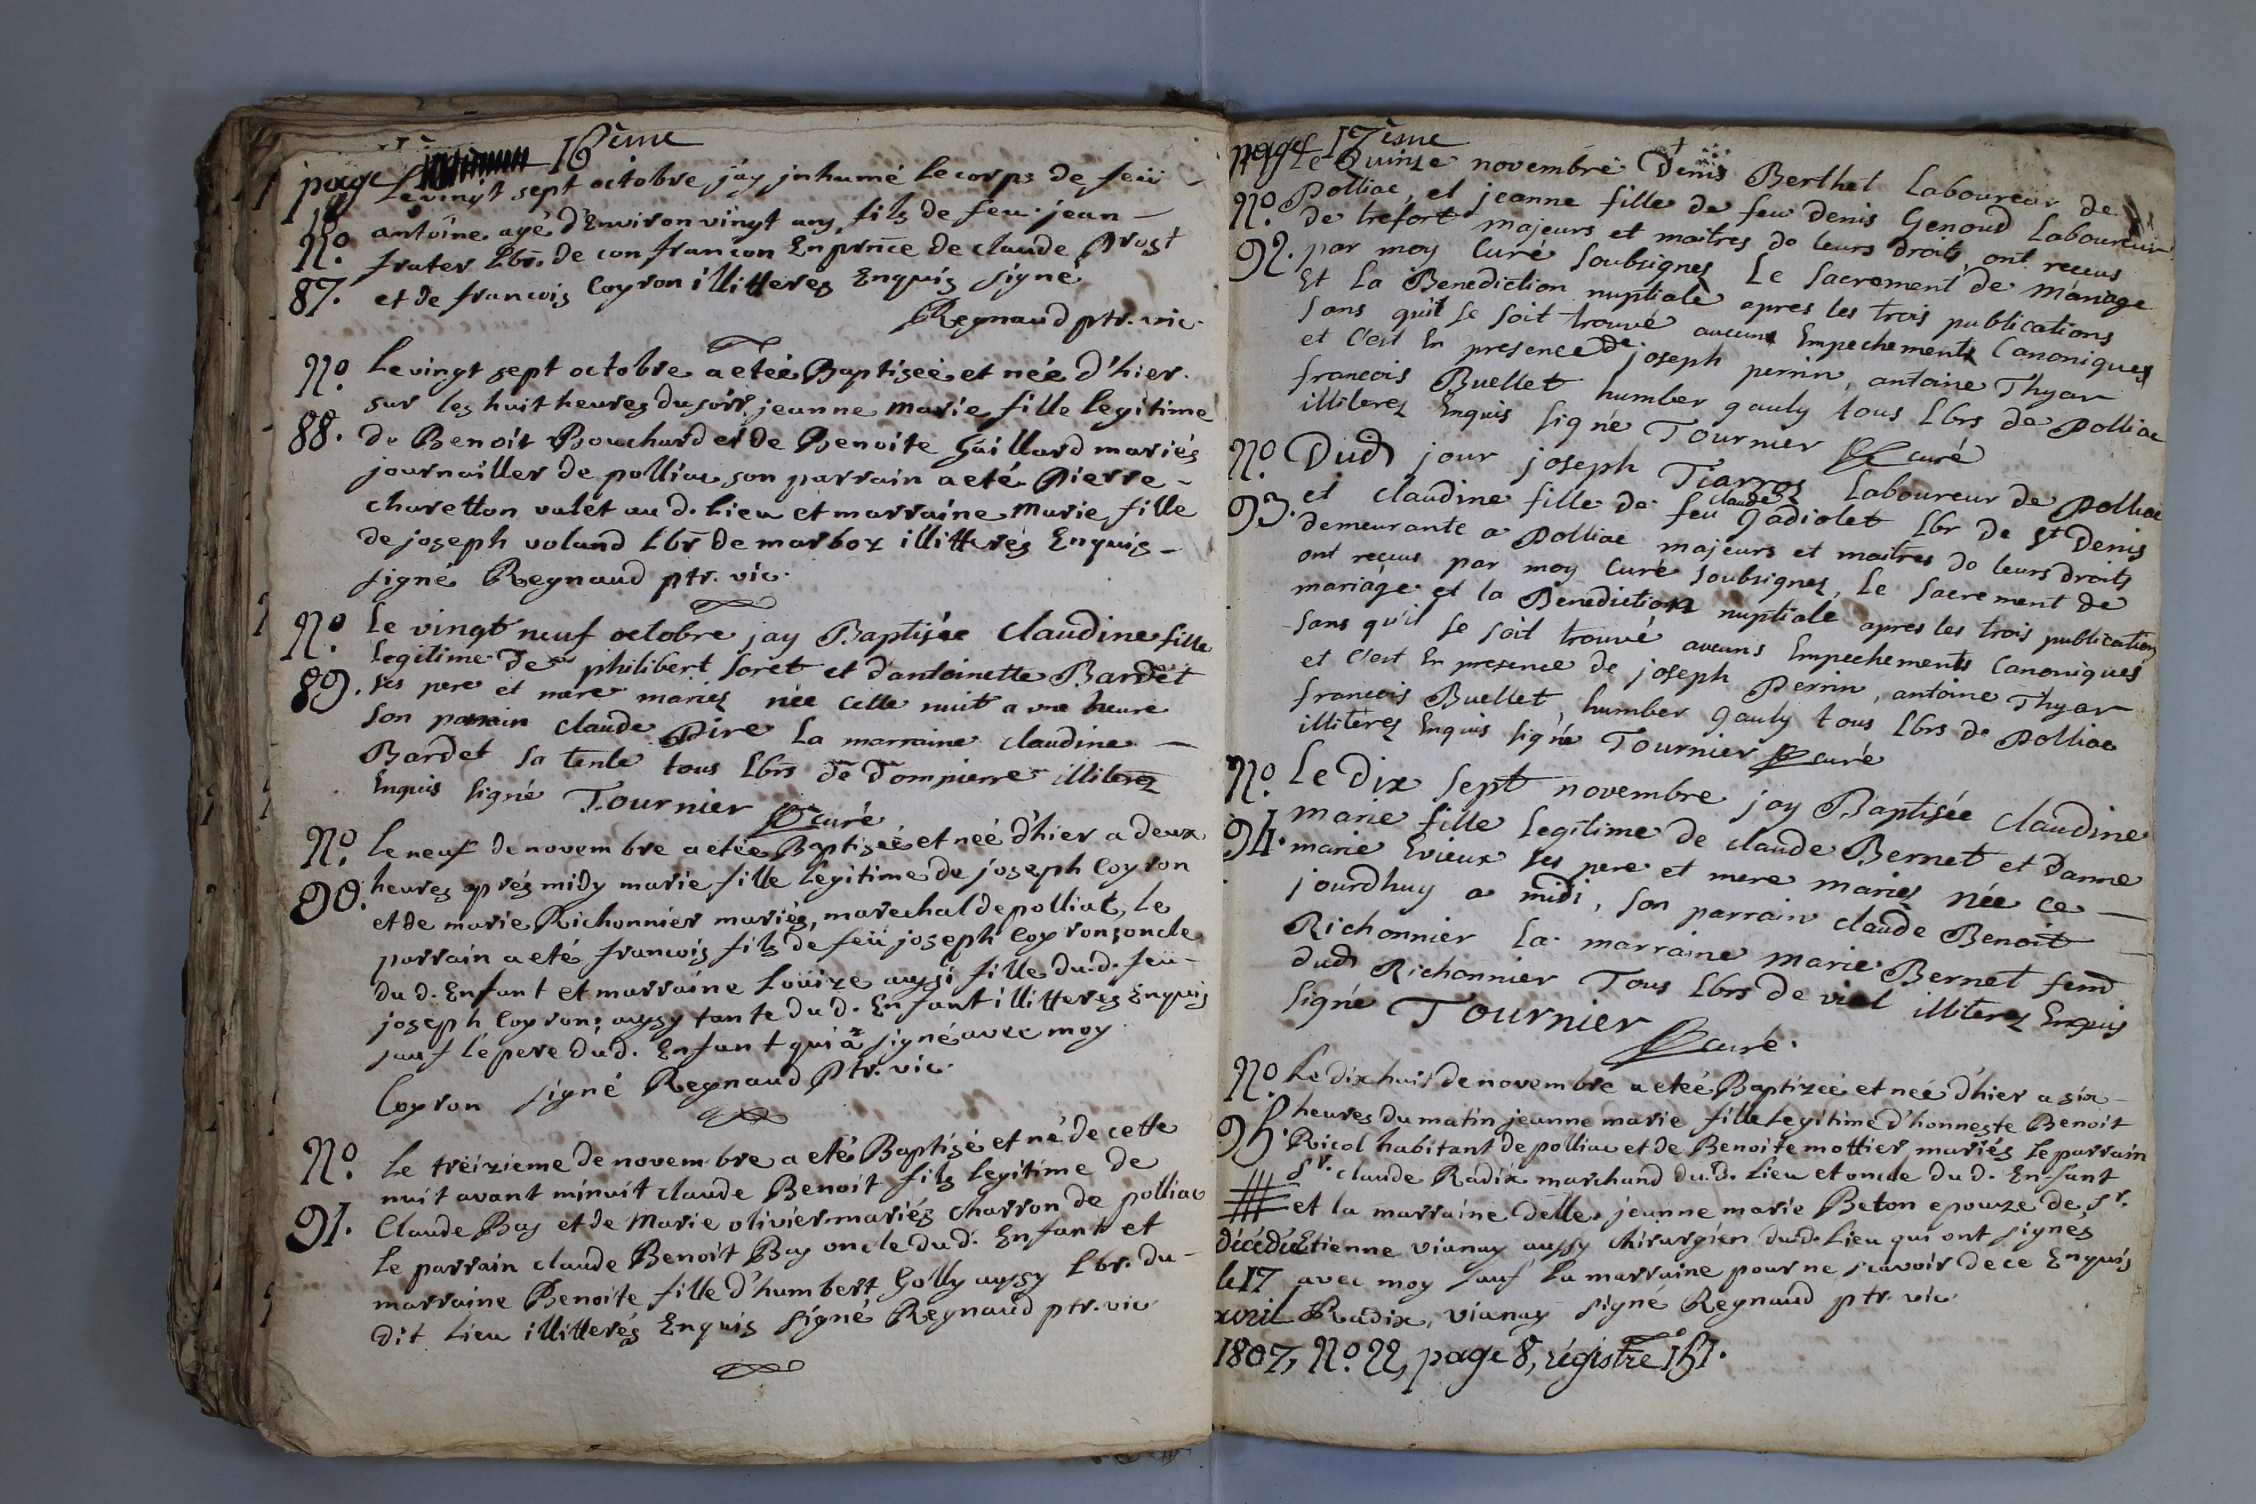 page 16ème
Le vingt sept octobre jäy jnhumé le corps de feü
No. antoine agé d'Environ vingt ans fils de feu jean
87. frater Lbr. de confrancon En prnce de claude Prost
et de francois Coyron illitteres Enquis signé
Regnaud ptr. vic.
No. Le vingt sept octobre a etéé Baptiseé et néé d'hier
sur les huit heures du soir jeanne marie fille legitime
88. de Benoit Bouchard et de Benoite Gaillard mariés
journailler de polliac, son parrain a eté Pierre
charetton valet au d. Lieu et marraine marie fille
de joseph voland Lbr de marboz illitterés Enquis
signé Regnaud ptr. vic.
No. Le vingt neuf octobre jay Baptisée Claudine fille
legitime de philibert Soret et d'antoinette Bardet
89. ses pere et mere mariez née Cette nuit a une heure
Son parrain Claude Pire La marraine claudine
Bardet Sa tente tous Lbrs de Dompierre illiterez
Enquis Signé Tournier curé
No. Le neuf de novembre a etée Baptiseé et neé d'hier a deux
90. heures aprés midy marie fille Legitime de joseph Coyron
et de marie Richonnier mariés, marechal de polliat, Le
parrain a eté francois fils de feü joseph Coyron, oncle
du d. Enfant et marraine Loüize aussi fille du d. feü
joseph Coyron, aussy tante du d. Enfant illitteres Enquis
sauf le pere du d. Enfant qui a signé avec moy
Coyron signé Regnaud Ptr. vic.
No. Le treizieme de novembre a eté Baptisé et né de cette
nuit avant minuit claude Benoit fils legitime de
91. Claude Bas et de Marie olivier mariés charron de polliac
le parrain claude Benoit Bas oncle du d. Enfant et
marraine Benoite fille d'humbert Golly aussy Lbr. du
dit Lieu illitterés Enquis signé Regnaud ptr. vic
page 17ème
Le Quinze novembre Denis Berthet Laboureur de
No. Polliac, et jeanne fille de feu Denis Genoud Laboureur
de trefort majeurs et maitres de leurs droits, ont receus
92. par moy Curé Soubsignez Le Sacrement de Mariage
Et La Benediction nuptiale apres les trois publications
Sans qu'il se soit trouvé aucuns Empechements Canoniques
et C'est En presence de joseph perrin, antoine Thyar
francois Buellet humber gauly tous Lbrs de Polliac
illiterez Enquis Signé Tournier curé
No. Dud jour joseph Tiarroz Laboureur de Polliac
et claudine fille de feu claude gadiolet Lbr de St Denis
93. demeurante a Polliac majeurs et maitres de leurs droits
ont reçeus par moy Curé Soubsignez, Le Sacrement de
mariage et la Benediction nuptiale apres les trois publications
Sans qu'il se soit trouvé aucuns Empechements Canoniques
et C'est En presence de joseph Perrin, antoine Thyar
francois Buellet, humber gauly tous Lbrs de Polliac
illiterez Enquis Signé Tournier curé
No. Le Dix Sept novembre jay Baptisée Claudine
marie fille legitime de claude Bernet et Danne
94. marie Evieux ses pere et mere mariez née ce
jourdhuy a midi, Son parrain Claude Benoit
Richonnier La marraine marie Bernet fem
dud Richonnier Tous Lbrs de vial illiterez Enquis
Signé Tournier curé.
No. Le dix huit de novembre a eteé Baptizeé et neé d'hier a six
heures du matin jeanne marie fille Legitime d'honneste Benoit
95. Ricol habitant de polliac et de Benoite mottier mariés Le parrain
sr. claude Radix marchand du d. Lieu et oncle du d. Enfant
et la marraine delle. jeanne marie Beton epouze de sr.
Etienne vianay aussy chirurgien du d. Lieu qui ont signés
avec moy sauf La marraine pour ne scavoir de ce Enquis
Radix, vianay signé Regnaud ptr. vic
décédée
le 17
avril
1807, No. 22, page 8, régistre 151.